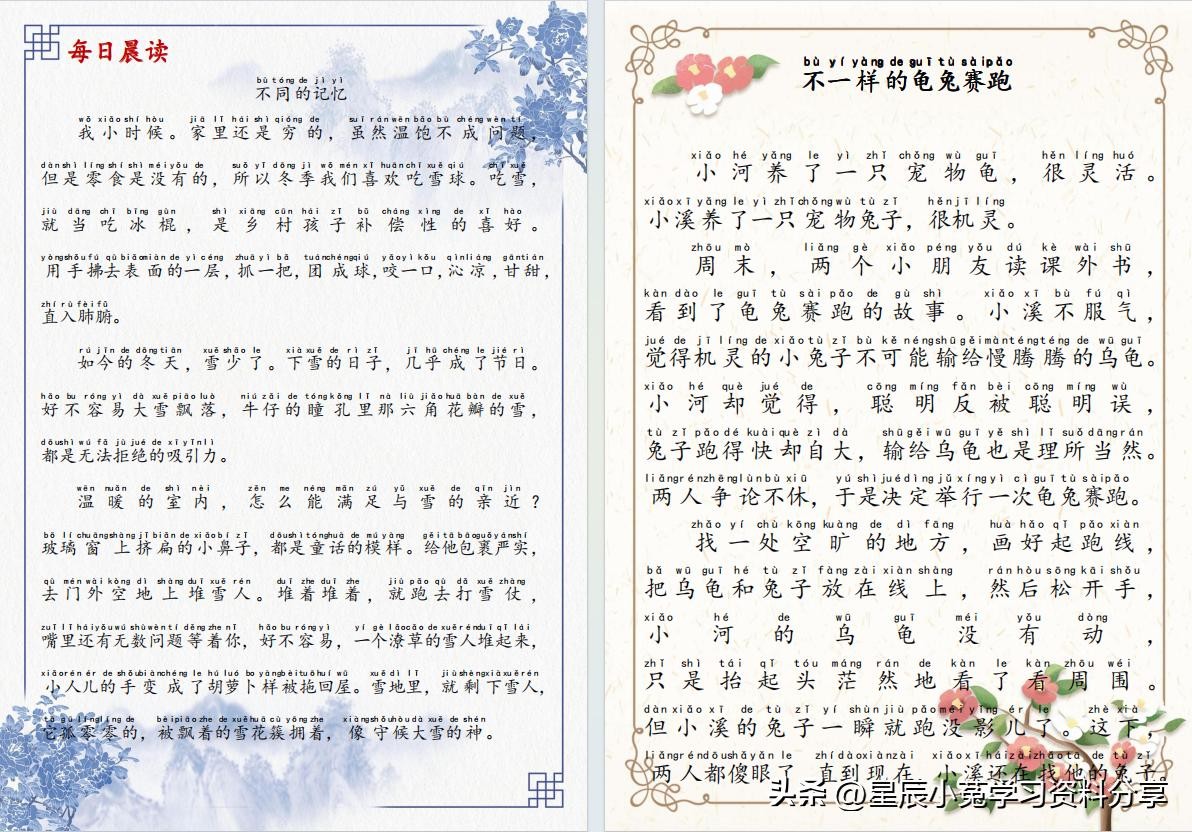 每日晨读
bù tóng de jì yì
不同的记忆
wǒ xiǎo shí hòu jiā lǐ hái shì qióng de suī rán wēn bǎo bù chéng wèn tí
我小时候。家里还是穷的，虽然温饱不成问题，
dàn shì líng shí shì méi yǒu de suǒ yǐ dōng jì wǒ mén xǐ huān chī xuě qiú chī xuě
但是零食是没有的，所以冬季我们喜欢吃雪球。吃雪，
jiù dāng chī bīng gùn shì xiāng cūn hái zǐ bǔ cháng xìng de xǐ hào
就当吃冰棍，是乡村孩子补偿性的喜好。
yòng shǒu fú qù biǎo miàn de yì céng zhuā yì bǎ tuán chéng qiú yǎo yì kǒu qìn liáng gān tián
用手拂去表面的一层，抓一把，团成球，咬一口，沁凉，甘甜，
zhí rù fèi fǔ
直入肺腑。
rú jīn de dōng tiān xuě shǎo le xià xuě de rì zǐ jǐ hū chéng le jié rì
如今的冬天，雪少了。下雪的日子，几乎成了节日。
hǎo bu róng yì dà xuě piāo luò niú zǎi de tóng kǒng lǐ nà liù jiǎo huā bàn de xuě
好不容易大雪飘落，牛仔的瞳孔里那六角花瓣的雪，
dōu shì wú fǎ jù jué de xī yǐn lì
都是无法拒绝的吸引力。
wēn nuǎn de shì nèi zěn me néng mǎn zú yǔ xuě de qīn jìn
温暖的室内，怎么能满足与雪的亲近？
bō lí chuāng shàng jǐ biǎn de xiǎo bí zǐ dōu shì tóng huà de mú yàng gěi tā bāo guǒ yán shí
玻璃窗上挤扁的小鼻子，都是童话的模样。给他包裹严实，
qù mén wài kòng dì shàng duī xuě rén duī zhe duī zhe jiù pǎo qù dǎ xuě zhàng
去门外空地上堆雪人。堆着堆着，就跑去打雪仗，
zuǐ lǐ hái yǒu wú shù wèn tí děng zhe nǐ hǎo bu róng yì yí gè lǎo cǎo de xuě rén duī qǐ lái
嘴里还有无数问题等着你，好不容易，一个潦草的雪人堆起来，
xiǎo rén ér de shǒu biàn chéng le hú luó bo yàng bèi tuō huí wū xuě dì lǐ jiù shèng xià xuě rén
小人儿的手变成了胡萝卜样被拖回屋。雪地里，就剩下雪人，
tā gū líng líng de bèi piāo zhe de xuě huā cù yōng zhe xiàng shǒu hòu dà xuě de shén
它孤零零的，被飘着的雪花簇拥着，像守候大雪的神。
bù yí yàng de guī tù sài pǎo
不一样的龟兔赛跑
xiǎo hé yǎng le yì zhī chǒng wù guī hěn líng huó
小河养了一只宠物龟，很灵活。
xiǎo xī yǎng le yì zhī chǒng wù tù zǐ hěn jī líng
小溪养了一只宠物兔子，很机灵。
zhōu mò liǎng gè xiǎo péng yǒu dú kè wài shū
周末，两个小朋友读课外书，
kàn dào le guī tù sài pǎo de gù shì xiǎo xī bù fú qì
看到了龟兔赛跑的故事。小溪不服气，
jué de jī líng de xiǎo tù zǐ bù kě néng shū gěi màn téng téng de wū guī
觉得机灵的小兔子不可能输给慢腾腾的乌龟。
xiǎo hé què jué de cōng míng fǎn bèi cōng míng wù
小河却觉得，聪明反被聪明误，
tù zǐ pǎo dé kuài què zì dà shū gěi wū guī yě shì lǐ suǒ dāng rán
兔子跑得快却自大，输给乌龟也是理所当然。
liǎng rén zhēng lùn bù xiū yú shì jué dìng jǔ xíng yí cì guī tù sài pǎo
两人争论不休，于是决定举行一次龟兔赛跑。
zhǎo yí chù kōng kuàng de dì fāng huà hǎo qǐ pǎo xiàn
找一处空旷的地方，画好起跑线，
bǎ wū guī hé tù zǐ fàng zài xiàn shàng rán hòu sōng kāi shǒu
把乌龟和兔子放在线上，然后松开手，
xiǎo hé de wū guī méi yǒu dòng
小河的乌龟没有动，
zhǐ shì tái qǐ tóu máng rán de kàn le kàn zhōu wéi
只是抬起头茫然地看了看周围。
dàn xiǎo xī de tù zǐ yí shùn jiù pǎo méi yǐng ér le zhè xià
但小溪的兔子一瞬就跑没影儿了。这下，
liǎng rén dōu shǎ yǎn le zhí dào xiàn zài xiǎo xī hái zài zhǎo tā de tù zǐ
两人都傻眼了，直到现在，小溪还在找他的兔子。
头条 @星辰小菟学习资料分享